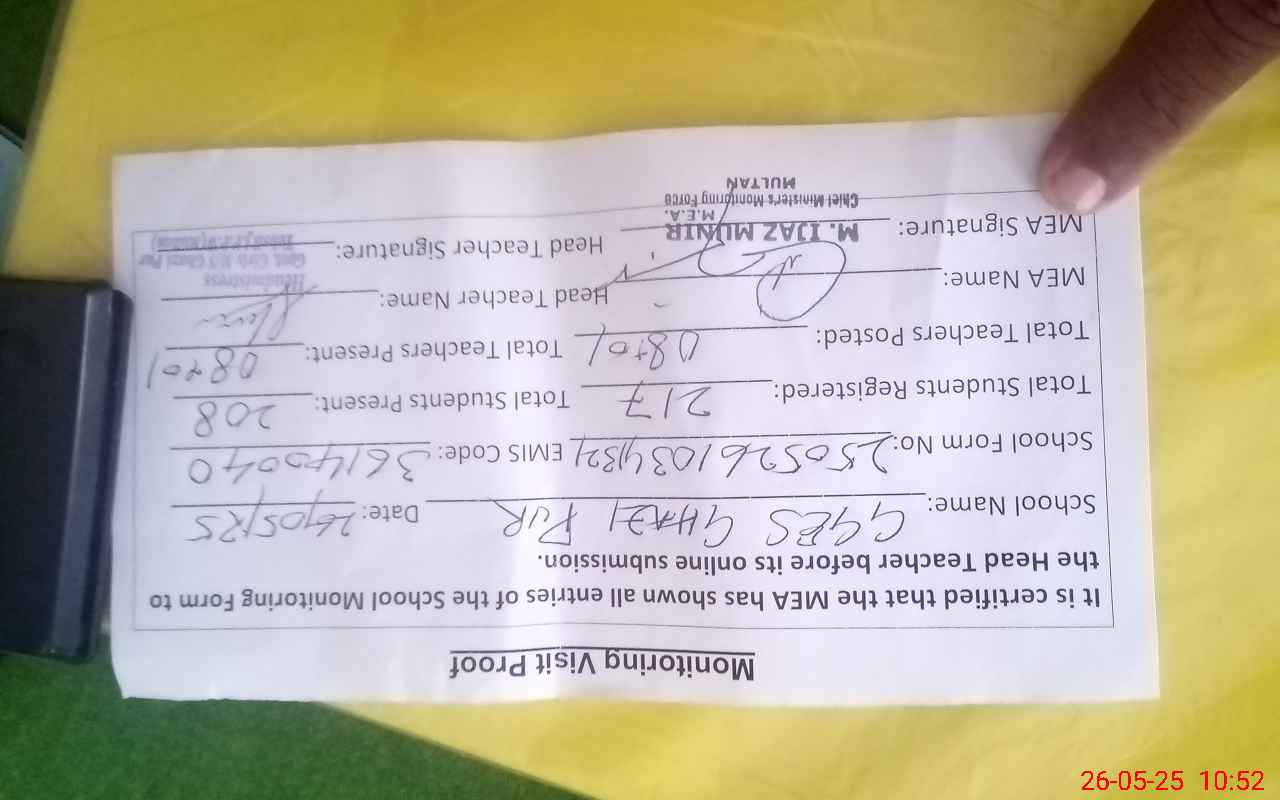 Monitoring Visit Proof
It is certified that the MEA has shown all entries of the School Monitoring Form to
the Head Teacher before its online submission.
School Name: GGES GHAZI PUR Date: 26/05/25
School Form No: EMIS Code:
Total Students Registered: 217 Total Students Present: 208
Total Teachers Posted: 08+01 Total Teachers Present: 08+01
MEA Name: Head Teacher Name:
MEA Signature: Head Teacher Signature:
M. IJAZ MUNIR
M.E.A.
Chief Minister's Monitoring Force
MULTAN
Headmistress
Govt. Girls Ghazi Pur
26-05-25 10:52